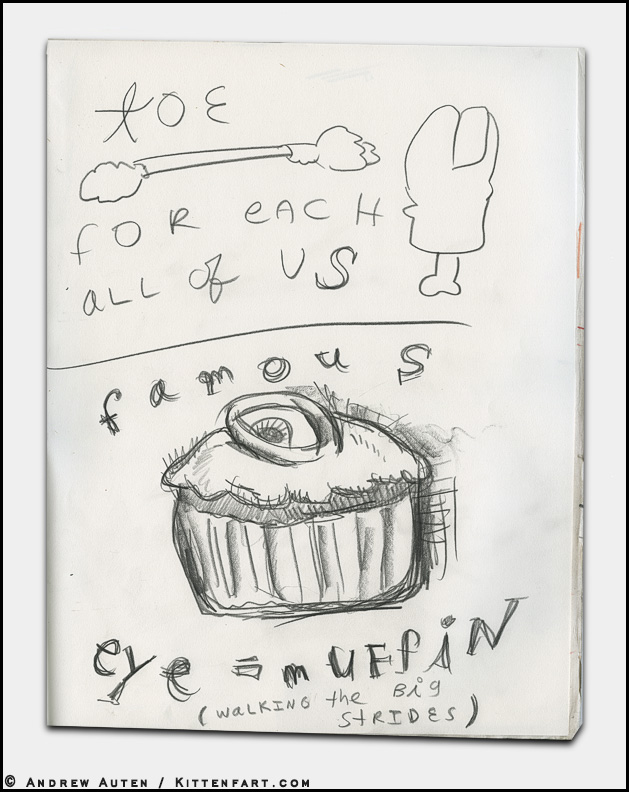 toE
foR EACH
ALL of US
famous
eye = mUFfiN
(WALKING the BiG
STRIDES)
© Andrew Auten / Kittenfart.com